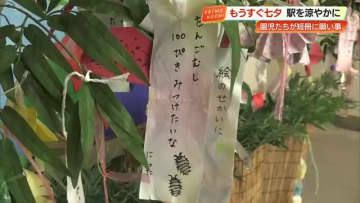 PRIME NEWS
もうすぐ七夕 駅を涼やかに
園児たちが短冊に願い事
絵のせかいに
だんごむし
100ぴきみつけたいな